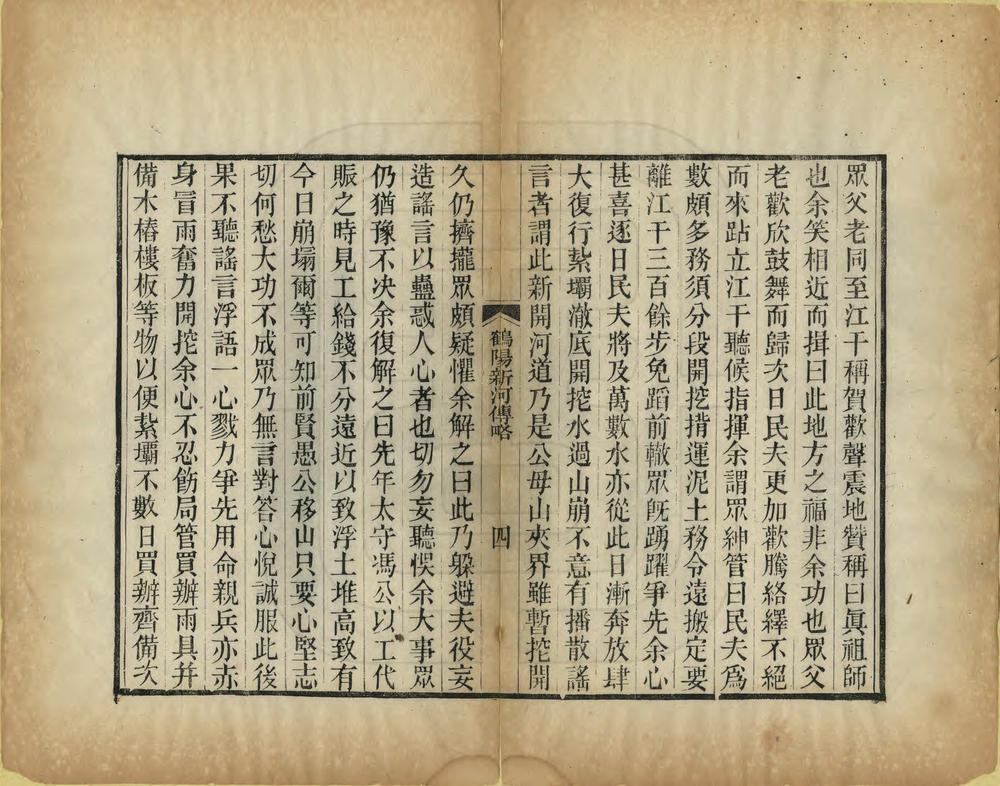 眾父老同至江干稱賀歡聲震地贊稱曰眞祖師
也余笑相近而揖曰此地方之福非余功也眾父
老歡欣鼓舞而歸次日民夫更加歡騰絡繹不絕
而來跕立江干聽候指揮余謂眾紳管曰民夫爲
數頗多務須分段開挖揹運泥土務令遠搬定要
離江干三百餘步免蹈前轍眾旣踴躍爭先余心
甚喜逐日民夫將及萬數水亦從此日漸奔放肆
大復行紮壩澈底開挖水過山崩不意有播散謠
言者謂此新開河道乃是公母山夾界雖暫挖開
鶴陽新河傳略
四
久仍擠攏眾頗疑懼余解之曰此乃躲避夫役妄
造謠言以蠱惑人心者也切勿妄聽悞余大事眾
仍猶豫不决余復解之曰先年太守馮公以工代
賑之時見工給錢不分遠近以致浮土堆高致有
今日崩塌爾等可知前賢愚公移山只要心堅志
切何愁大功不成眾乃無言對答心悅誠服此後
果不聽謠言浮語一心戮力爭先用命親兵亦赤
身冒雨奮力開挖余心不忍飭局管買辦雨具并
備木樁樓板等物以便紮壩不數日買辦齊備次